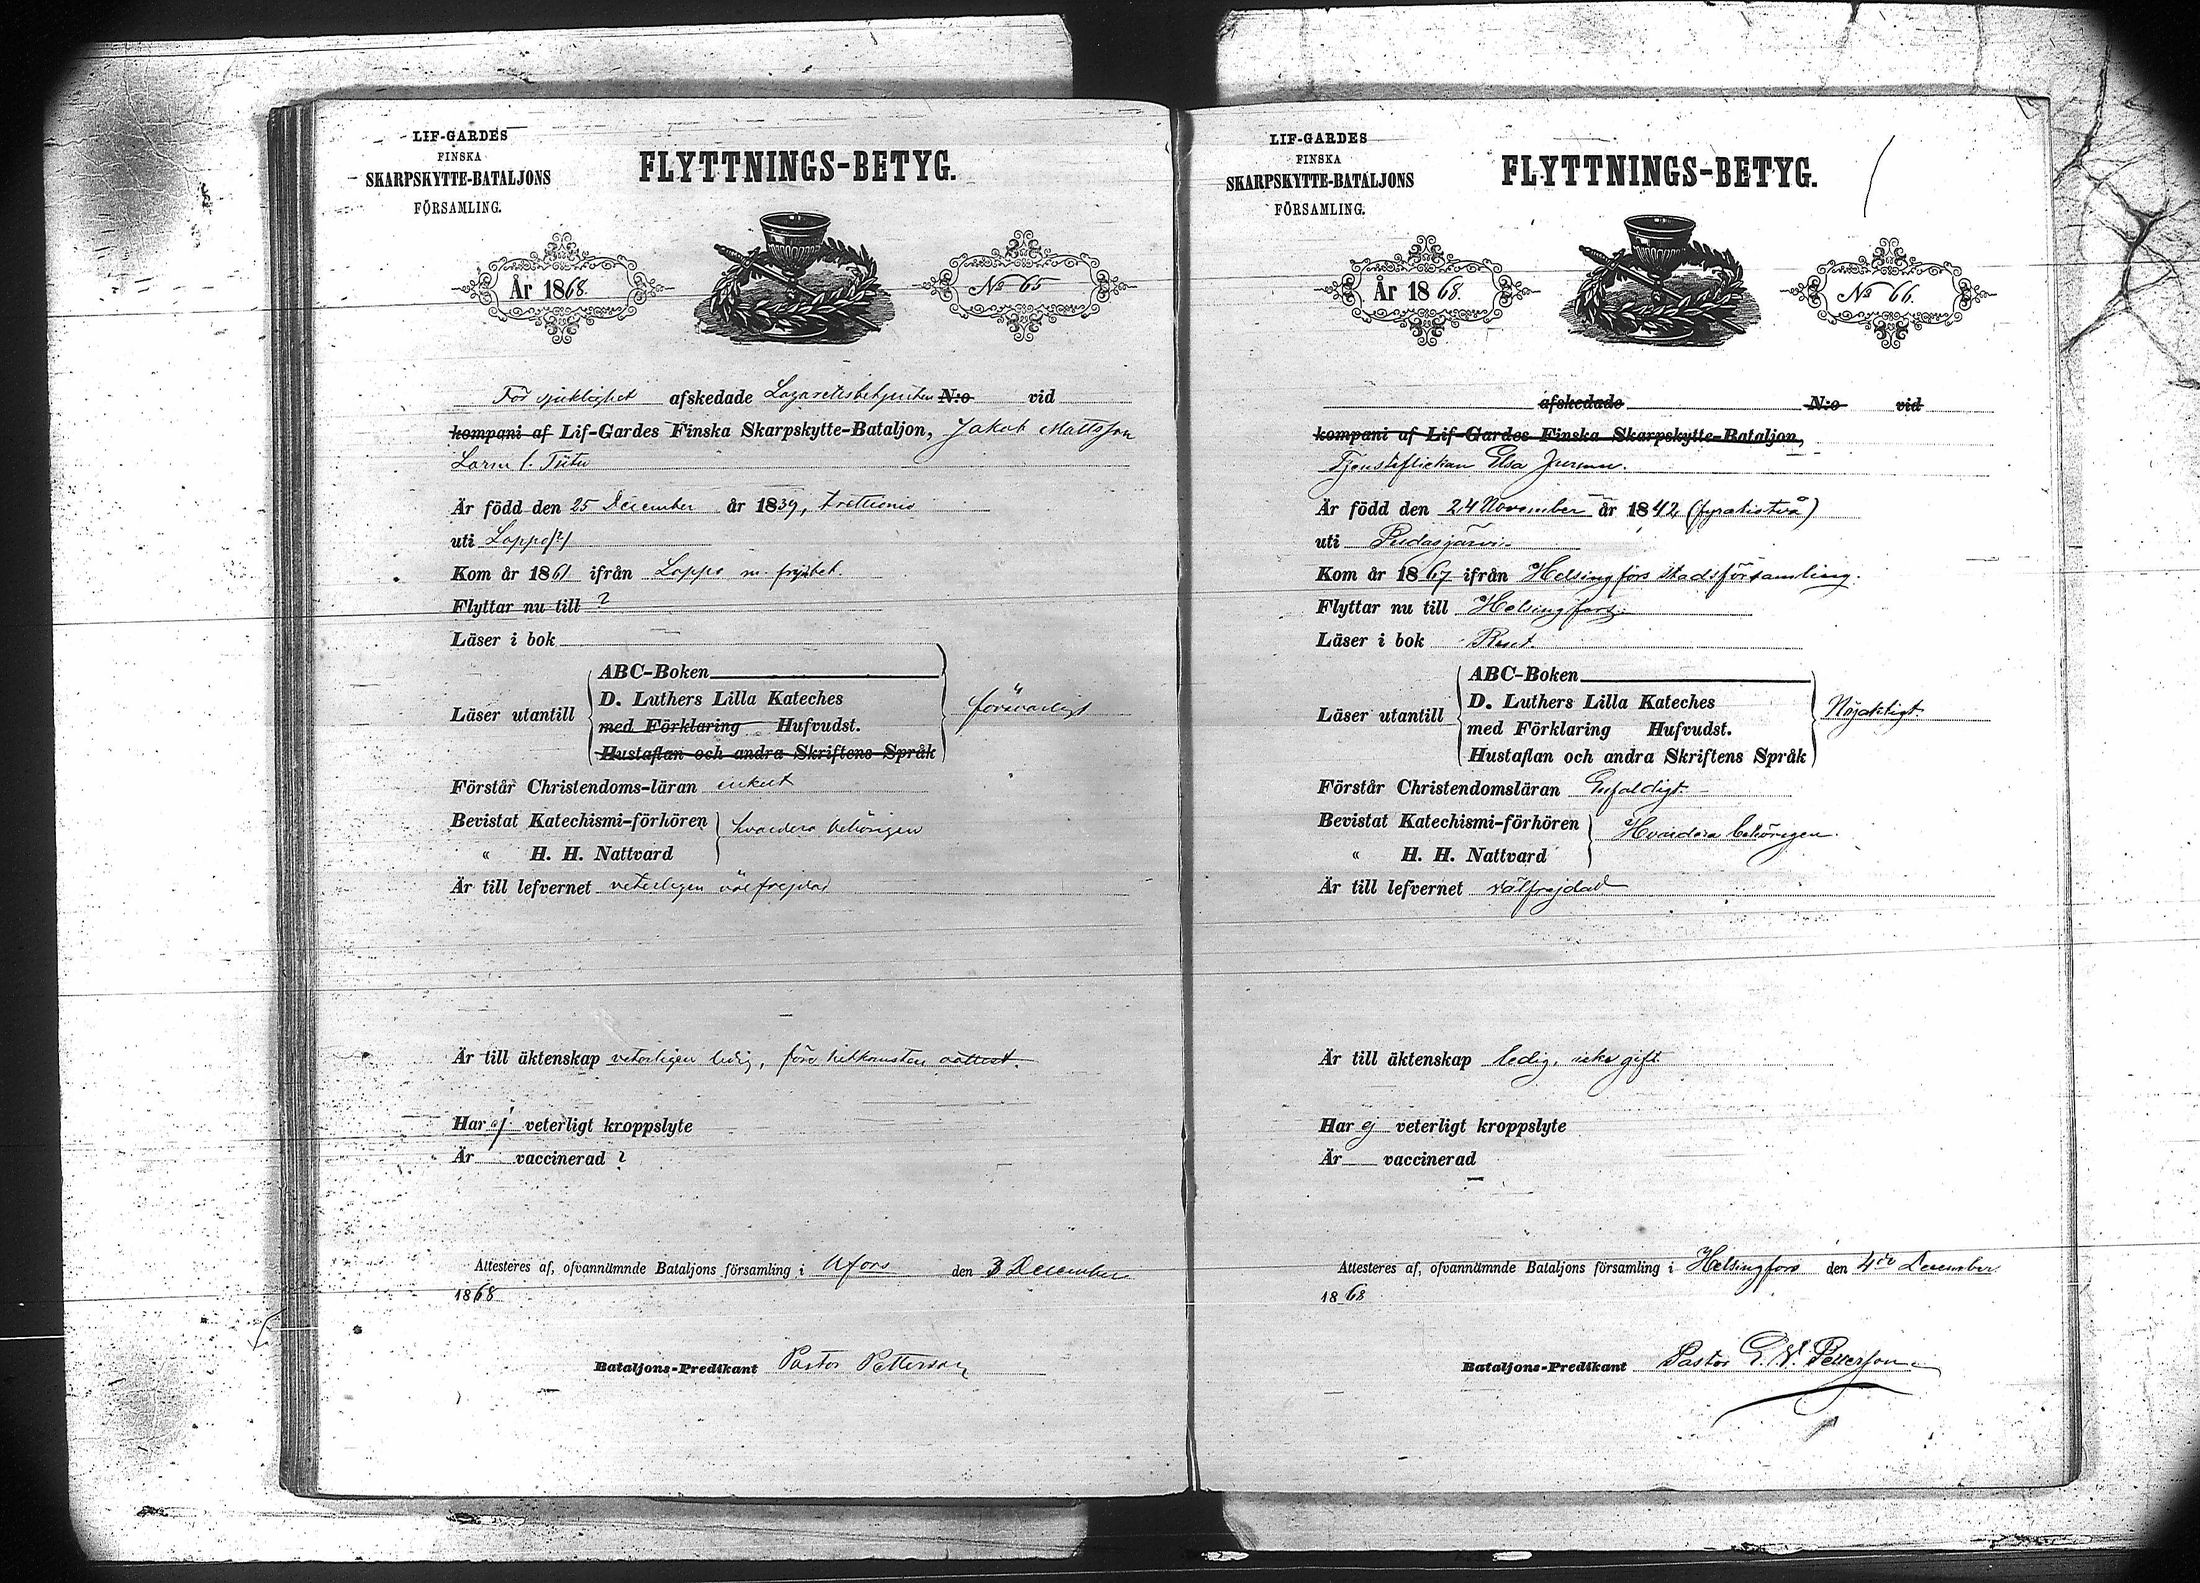 LIF-GARDES
FINSKA
SKARPSKYTTE-BATALJONS
FÖRSAMLING.
FLYTTNINGS-BETYG.
År 1868.
No 65
För sjuklighet afskedade Lazarettsbetjenten N:o vid
kompani af Lif-Gardes Finska Skarpskytte-Bataljon, Jakob Mattsson
Är född den 25 December år 1839, trettionio
uti Lappo(?)
Kom år 1861 ifrån Lappo m. frejdbet.
Flyttar nu till ?
Läser i bok
ABC-Boken
Läser utantill
D. Luthers Lilla Kateches
med Förklaring Hufvudst.
Hustaflan och andra Skriftens Språk
försvarligt
Förstår Christendoms-läran enkelt
Bevistat Katechismi-förhören
" H. H. Nattvard
hvardera behörigen
Är till lefvernet veterligen välfrejdad
Är till äktenskap veterligen ledig, före hitkomsten attest.
Har ej veterligt kroppslyte
Är vaccinerad ?
Attesteres af, ofvannämnde Bataljons församling i Hfors den 3 December
1868
Bataljons-Predikant Pastor Petterson
LIF-GARDES
FINSKA
SKARPSKYTTE-BATALJONS
FÖRSAMLING.
FLYTTNINGS-BETYG.
År 1868.
No 66.
afskedade N:o vid
kompani af Lif-Gardes Finska Skarpskytte-Bataljon,
Tjensteflickan Elsa Jurmu.
Är född den 24 November år 1842 (fyratiotvå)
uti Pudasjärvi
Kom år 1867 ifrån Helsingfors stadsförsamling.
Flyttar nu till Helsingfors.
Läser i bok Rent.
ABC-Boken
Läser utantill
D. Luthers Lilla Kateches
med Förklaring Hufvudst.
Hustaflan och andra Skriftens Språk
Nöjaktigt.
Förstår Christendomsläran Enfaldigt.
Bevistat Katechismi-förhören
" H. H. Nattvard
Hvardera behörigen.
Är till lefvernet välfrejdad
Är till äktenskap ledig, icke gift.
Har ej veterligt kroppslyte
Är vaccinerad
Attesteres af, ofvannämnde Bataljons församling i Helsingfors den 4de December
1868
Bataljons-Predikant Pastor G. W. Petterson